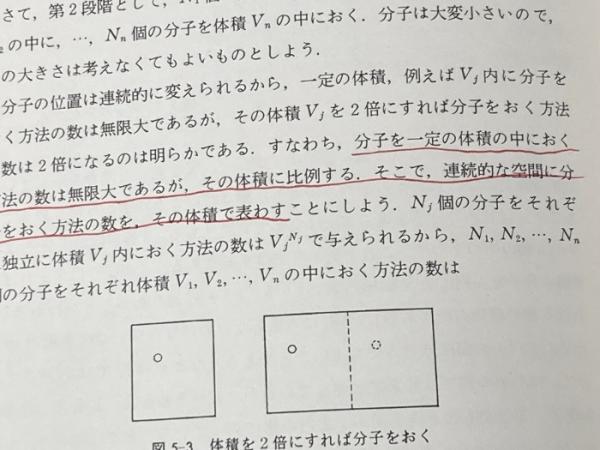 さて，第2段階として，
の中に，…，Nₙ 個の分子を体積 Vₙ の中におく．分子は大変小さいので，
の大きさは考えなくてもよいものとしよう．
分子の位置は連続的に変えられるから，一定の体積，例えば Vⱼ 内に分子を
く方法の数は無限大であるが，その体積 Vⱼ を2倍にすれば分子をおく方法
数は2倍になるのは明らかである．すなわち，分子を一定の体積の中におく
法の数は無限大であるが，その体積に比例する．そこで，連続的な空間に分
をおく方法の数を，その体積で表わすことにしよう．Nⱼ 個の分子をそれぞ
独立に体積 Vⱼ 内におく方法の数は Vⱼ^Nⱼ で与えられるから，N₁, N₂, …, Nₙ
の分子をそれぞれ体積 V₁, V₂, …, Vₙ の中におく方法の数は
図5-3 体積を2倍にすれば分子をおく